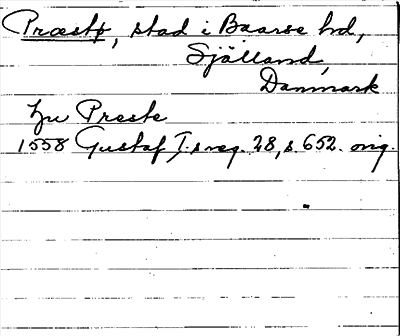 Præstø, stad i Baarse hd,
Själland,
Danmark
Zu Preste
1558 Gustaf I:s reg. 28, s. 652. orig.